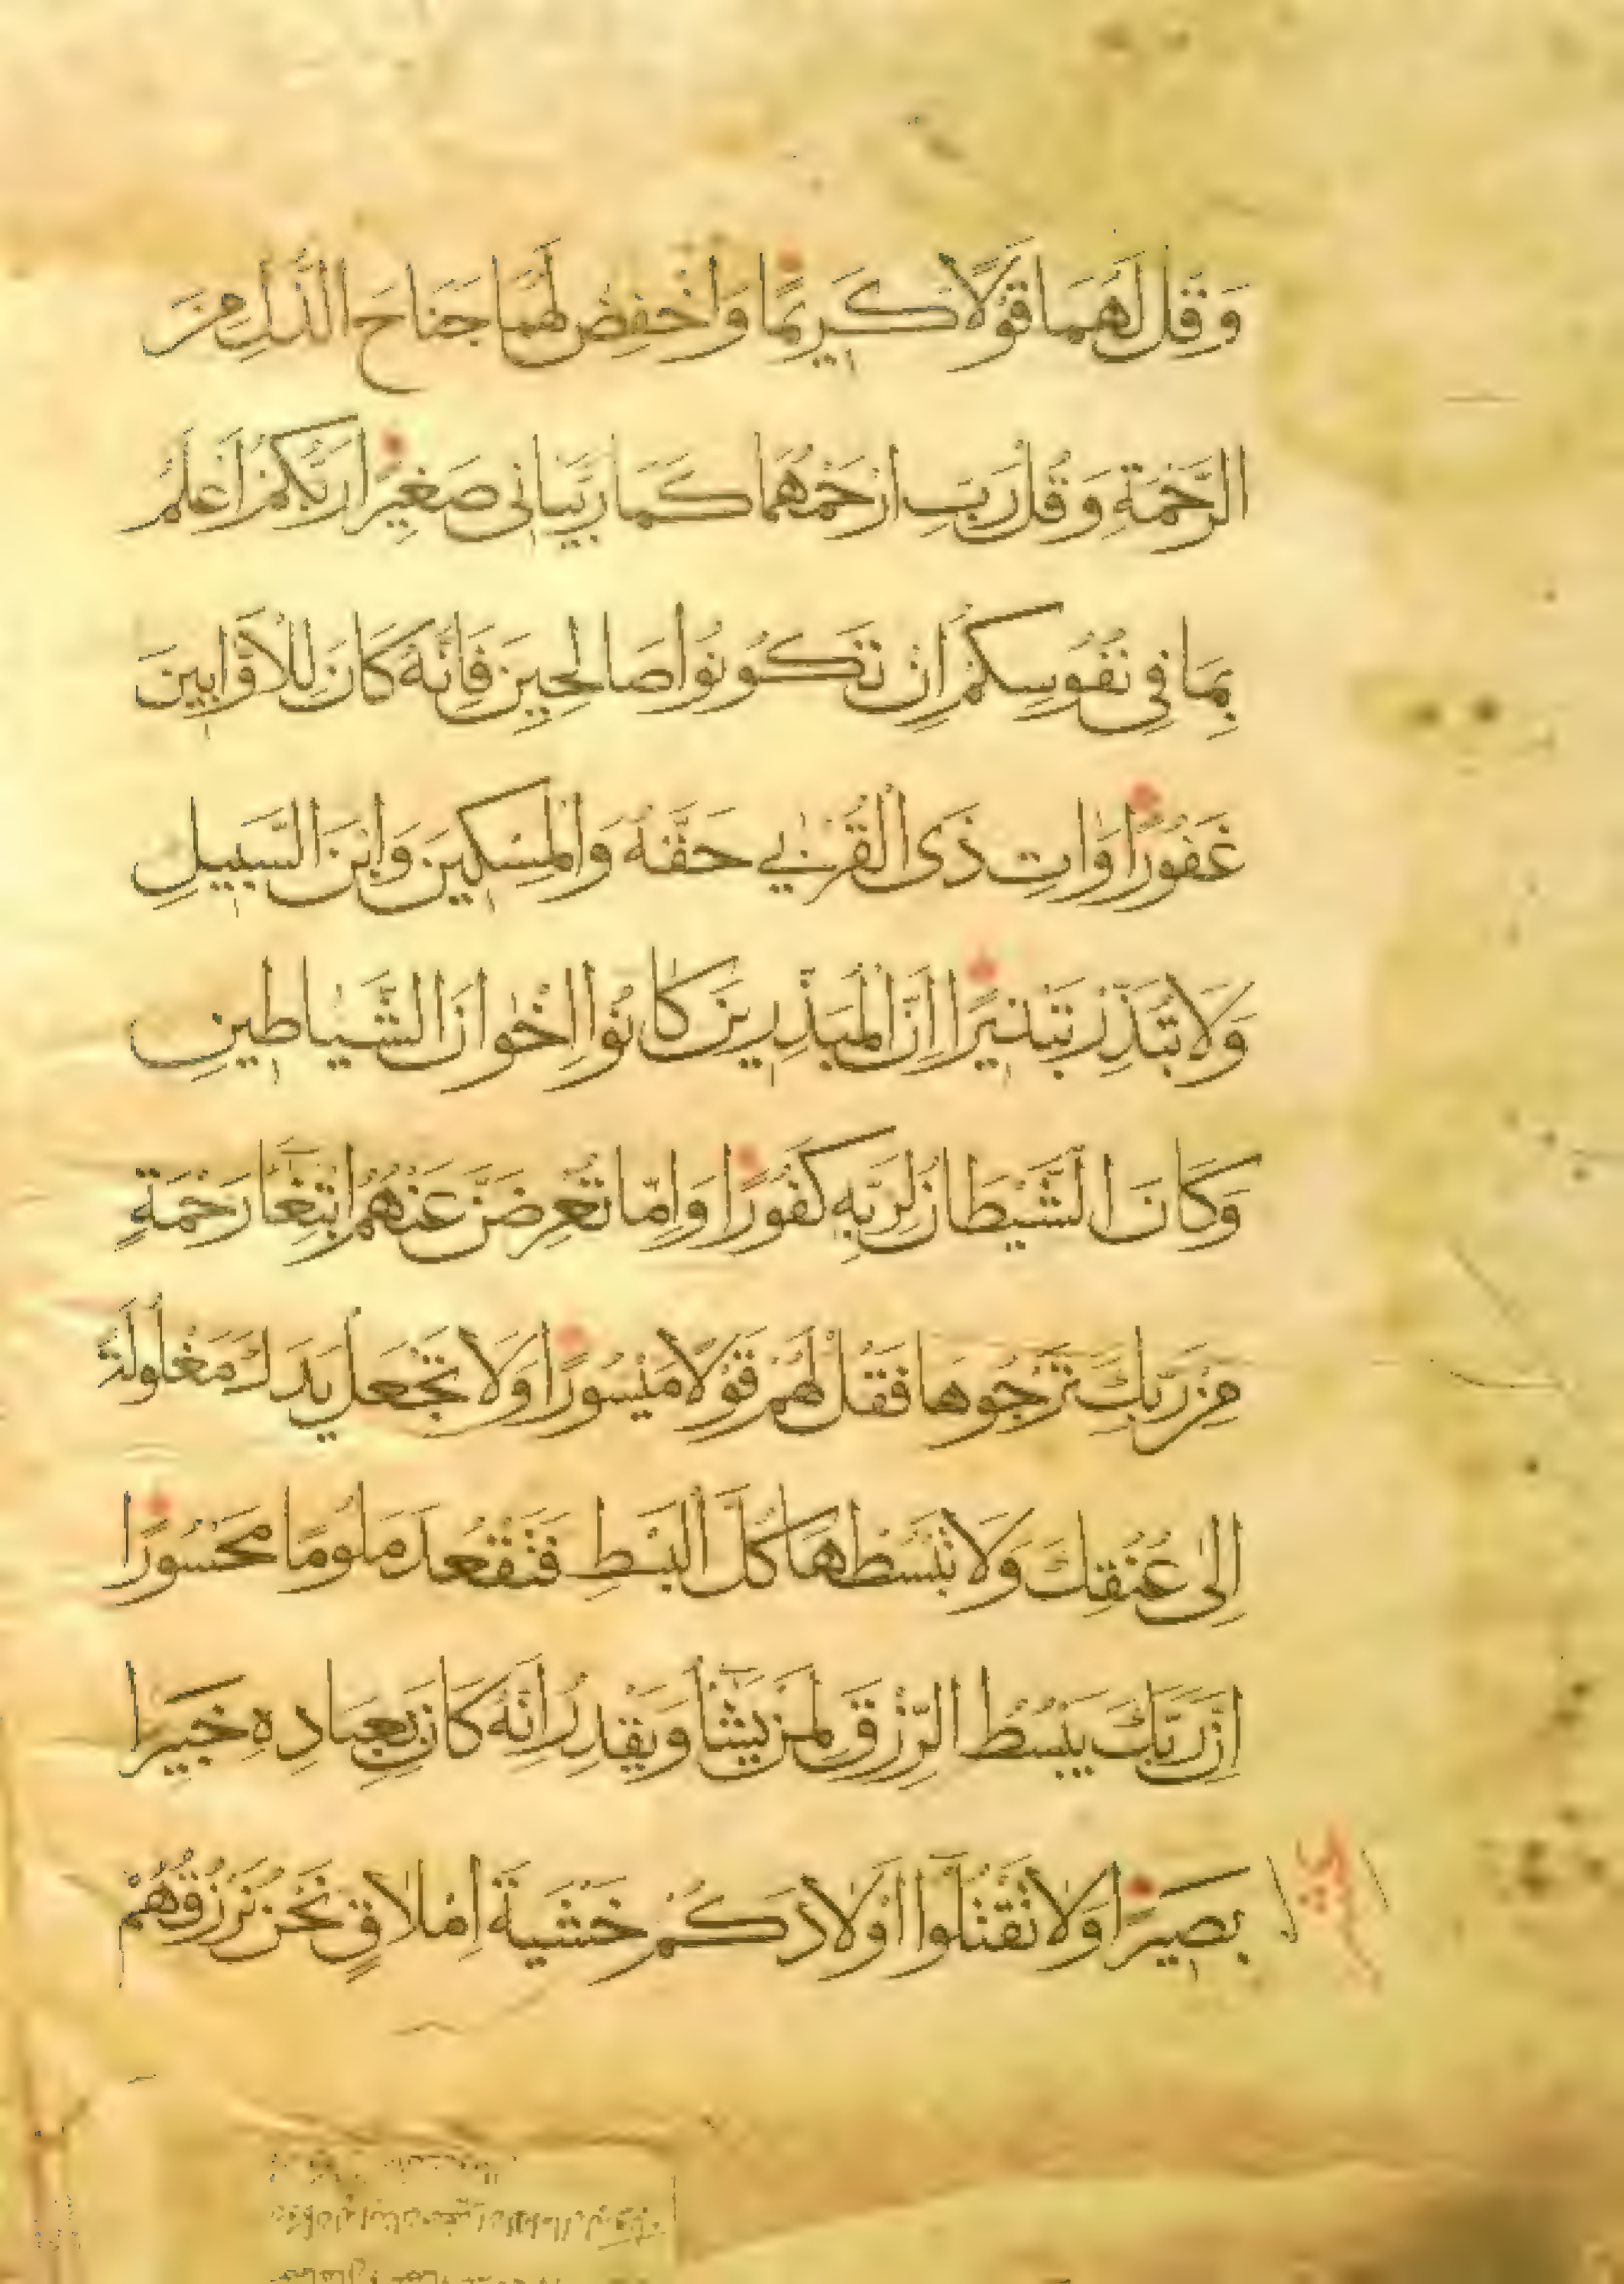 وَقُل لَهُمَا قَوْلًا كَرِيمًا وَاخْفِضْ لَهُمَا جَنَاحَ الذُّلِّ مِنَ
الرَّحْمَةِ وَقُلْ رَبِّ ارْحَمْهُمَا كَمَا رَبَّيَانِى صَغِيرًا رَبُّكُمْ أَعْلَمُ
بِمَا فِى نُفُوسِكُمْ اِنْ تَكُونُوا صَالِحِينَ فَاِنَّهُ كَانَ لِلْاَوَّابِينَ
غَفُورًا وَاٰتِ ذَى الْقُرْبٰى حَقَّهُ وَالْمِسْكِينَ وَابْنَ السَّبِيلِ
وَلَا تُبَذِّرْ تَبْذِيرًا اِنَّ الْمُبَذِّرِينَ كَانُوا اِخْوَانَ الشَّيَاطِينِ
وَكَانَ الشَّيْطَانُ لِرَبِّهِ كَفُورًا وَاِمَّا تُعْرِضَنَّ عَنْهُمُ ابْتِغَآءَ رَحْمَةٍ
مِنْ رَبِّكَ تَرْجُوهَا فَقُلْ لَهُمْ قَوْلًا مَيْسُورًا وَلَا تَجْعَلْ يَدَكَ مَغْلُولَةً
اِلٰى عُنُقِكَ وَلَا تَبْسُطْهَا كُلَّ الْبَسْطِ فَتَقْعُدَ مَلُومًا مَحْسُورًا
اِنَّ رَبَّكَ يَبْسُطُ الرِّزْقَ لِمَنْ يَشَآءُ وَيَقْدِرُ اِنَّهُ كَانَ بِعِبَادِهِ خَبِيرًا
بَصِيرًا وَلَا تَقْتُلُوٓا اَوْلَادَكُمْ خَشْيَةَ اِمْلَاقٍ نَحْنُ نَرْزُقُهُمْ